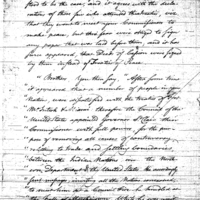 had to be the case; and it agrees with the decla-
ration of those few who attended the treaty, viz
that they would meet your Commissioners to
make peace, but that fear was obliged to sign
any paper that was laid before them, and it has
since appeared that Deeds of Cession were signed
by them instead of Treaties of Peace.
"Brothers, you then say, 'After some time
it appeared that a number of people in your
Nation were dissatisfied with the Treaties of Fort
McIntosh & Miami, therefore the Council of the
United States appointed Governor St. Clair their
Commissioner with full power, for the pur-
pose of removing all causes of controversy,
relating to trade and settling boundaries,
between the Indian Nations in the North-
ern Department & the United States. He accordingly
sent messages inviting all the Nations concerned
to meet him at a Council Fire he kindled at
the Falls of Muskingum. While he was